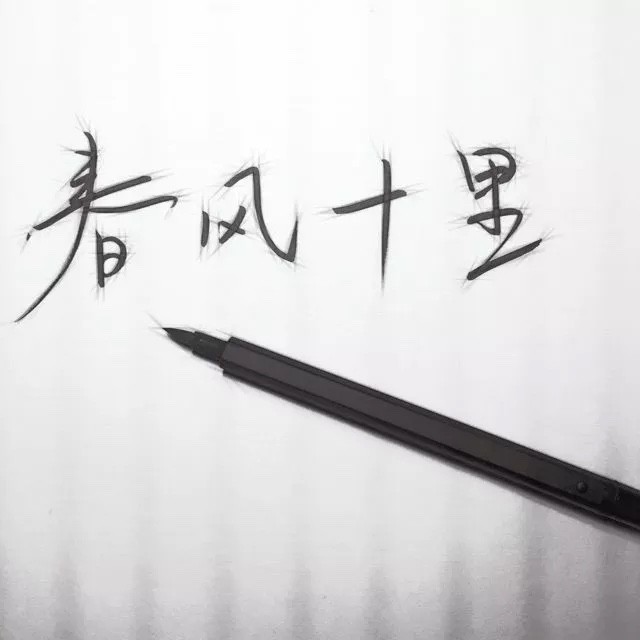 春风十里